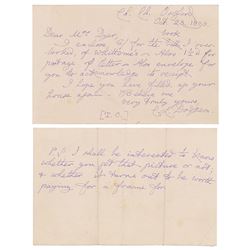 Ch. Ch. Oxford
Oct. 23, 1890
Dear Mrs Dyer,
book
I enclose 6/ for the little, I over
looked of Whittome's – Also 1½d for
postage of letter – Also envelope for
you to acknowledge receipt.
I hope you have filled up your
house again.
Very truly yours,
C. L. Dodgson
[T. O.]
P.S. I shall be interested to know
whether you get that picture or not,
& whether it turns out to be worth
paying for a frame for